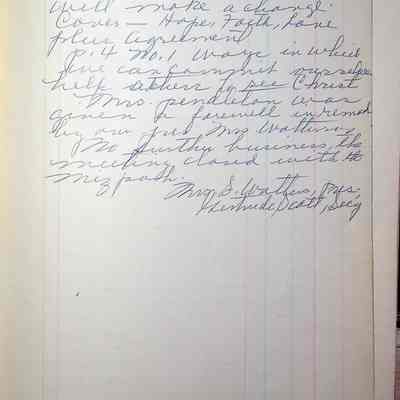 will make a change.
Cover — Hope, Faith, Love
plus agreement
p. 4 No. 1 Ways in which
we can commit ourselves
help others to see Christ
Mrs. pendleton was
given a farewell in remarks
by our pres Mrs Watters.
No further business, the
meeting closed with the
Mizpah.
Mrs S. Watters, Pres.
Gertrude Scott, Sec'y